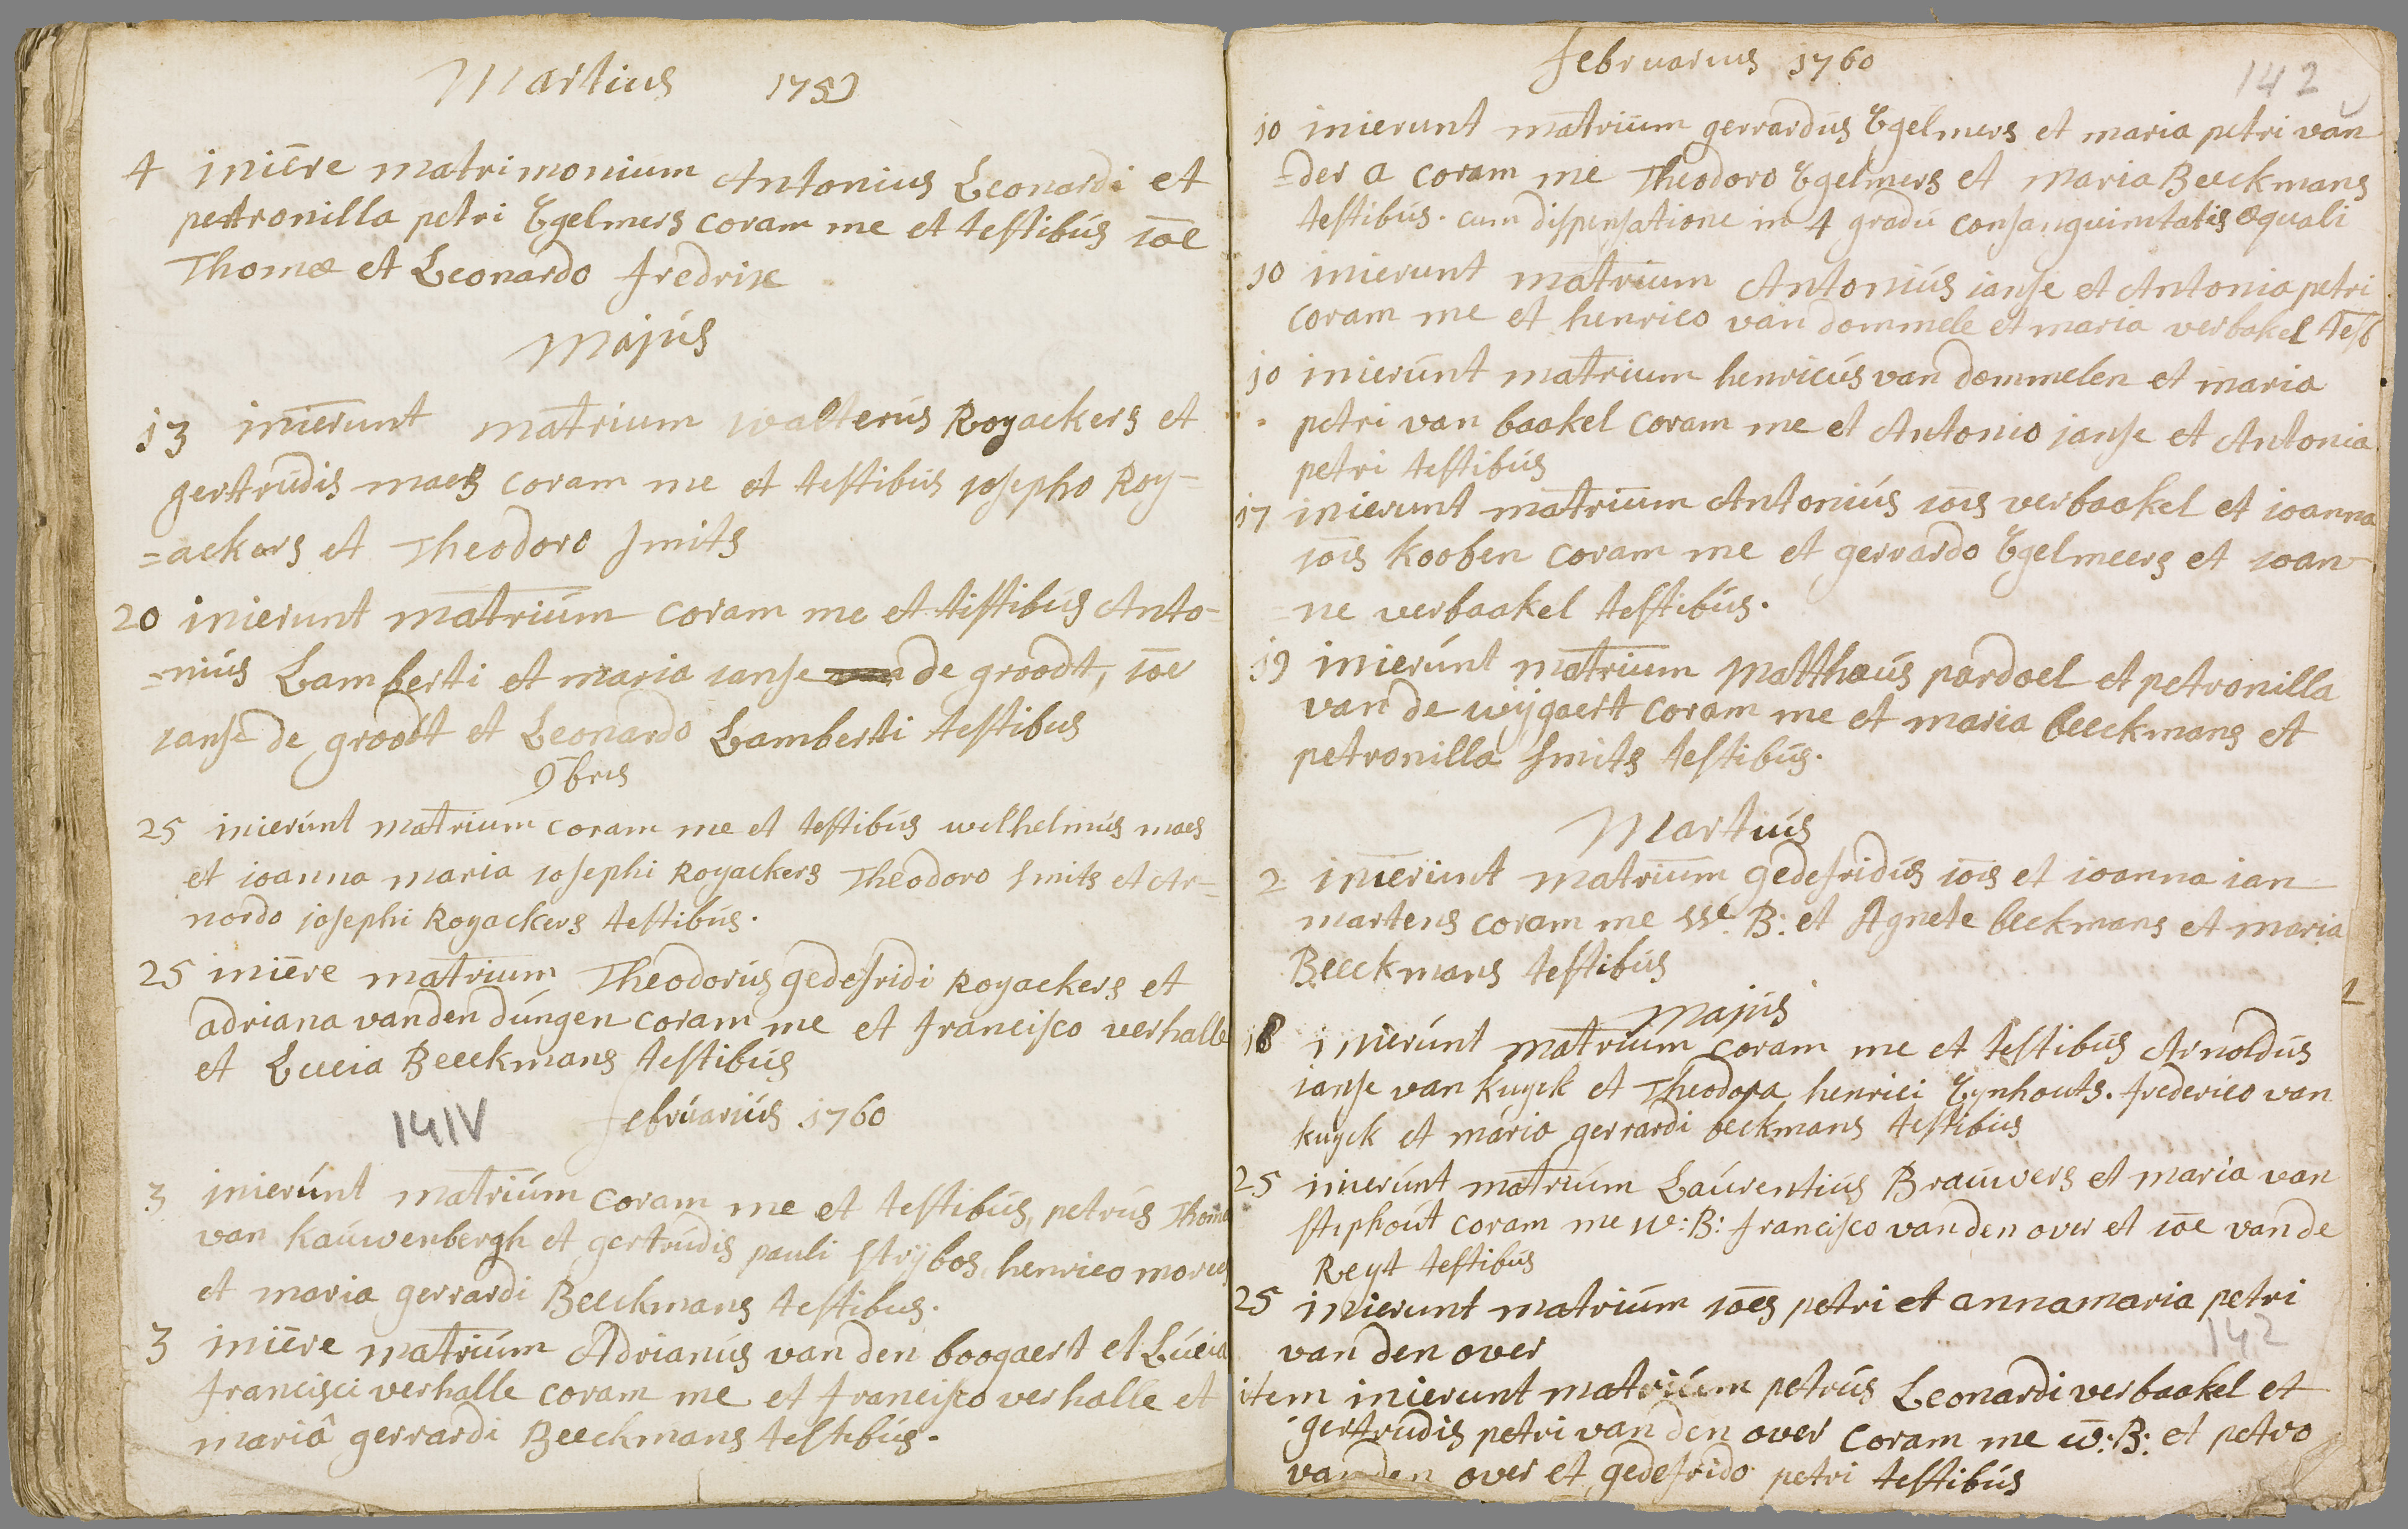 Martius 1759
4 iniere matrimonium Antonius Leonardi et
petronilla petri Egelmers coram me et testibus ioe
Thomæ et Leonardo fredrix
Majus
13 inierunt matrium walterus Royackers et
gertrudis maes coram me et testibus josepho Roy-
=ackers et Theodoro smits
20 inierunt matrium coram me et testibus Anto-
=nius Lamberti et maria janse de groodt, ioe
janse de groodt et Leonardo Lamberti testibus
9bris
25 inierunt matrium coram me et testibus wilhelmus maes
et ioanna maria josephi Royackers Theodoro smits et Ar=
nordo josephi Royackers testibus.
25 iniere matrium Theodorus gedefridi Royackers et
adriana vanden dungen coram me et francisco verhalle
et Lucia Beeckmans testibus
141V februarius 1760
3 inierunt matrium coram me et testibus, petrus Thomæ
van kauwenbergh et gertrudis pauli strijbos, henrico
et maria gerrardi Beeckmans testibus.
3 iniere matrium Adrianus van den boogaert et Lucia
francisci verhalle coram me et francisco verhalle et
mariâ gerrardi Beeckmans testibus.
februarius 1760
142
10 inierunt matrium gerrardus Egelmers et maria petri van
=der a coram me Theodoro Egelmers et maria Beeckmans
testibus. cum dispensatione in 4 gradu consanguinitatis æquali
10 inierunt matrium Antonius janse et Antonia petri
coram me et henrico van dommele et maria verbakel test
10 inierunt matrium henricus van dommelen et maria
petri van baakel coram me et Antonio janse et Antonia
petri testibus
17 inierunt matrium Antonius iois verbaakel et ioanna
iois kooben coram me et gerrardo Egelmeers et ioan-
=ne verbaakel testibus.
19 inierunt matrium Matthæus pardoel et petronilla
van de wijgaert coram me et maria beeckmans et
petronilla smits testibus.
Martius
2 inierunt matrium gedefridus iois et ioanna ian
martens coram me W: B: et Agnete beckmans et maria
Beeckmans testibus
Majus
18 inierunt matrium coram me et testibus Arnoldus
janse van kuyck et Theodora henrici Eynhouts. frederico van
kuyck et maria gerrardi beckmans testibus
25 inierunt matrium Laurentius Brauwers et maria van
stiphout coram me w: B: francisco van den over et ioe van de
Reyt testibus
25 inierunt matrium ioes petri et annamaria petri
van den over
142
item inierunt matrium petrus Leonardi verbaakel et
gertrudis petri van den over coram me w: B: et petro
vanden over et gedefrido petri testibus